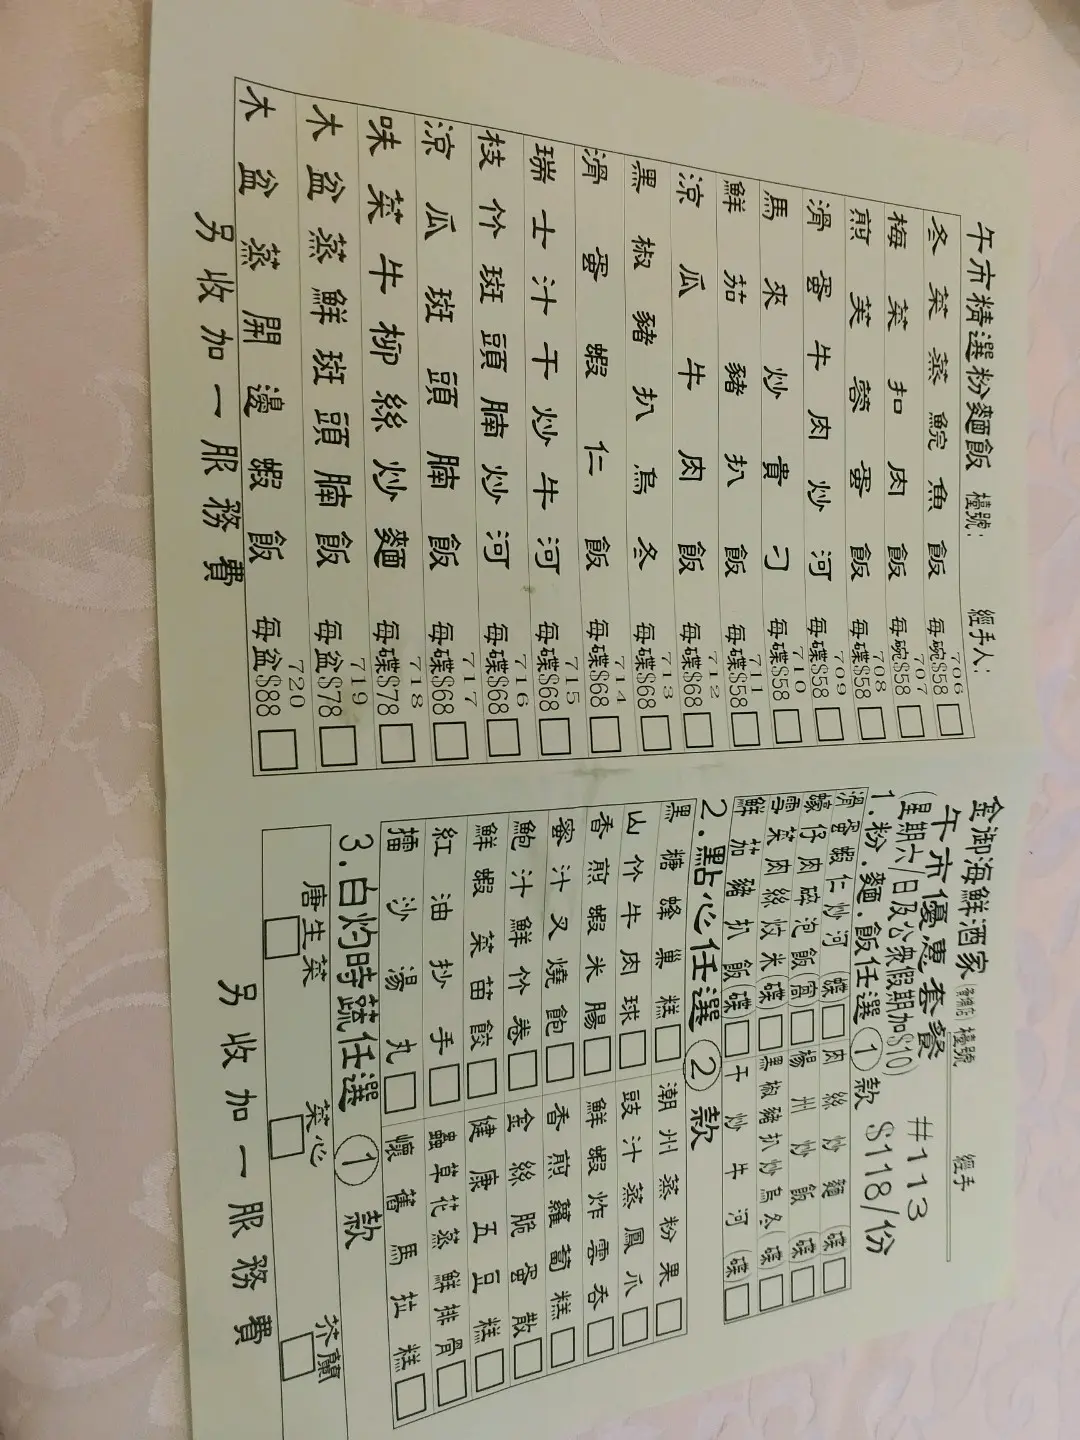 午市精選粉麵飯 檯號： 經手人：
706
冬菜蒸鯇魚飯 每碗$58
707
梅菜扣肉飯 每碗$58
708
煎芙蓉蛋飯 每碟$58
709
滑蛋牛肉炒河 每碟$58
710
馬來炒貴刁 每碟$58
711
鮮茄豬扒飯 每碟$58
712
涼瓜牛肉飯 每碟$68
713
黑椒豬扒烏冬 每碟$68
714
滑蛋蝦仁飯 每碟$68
715
瑞士汁干炒牛河 每碟$68
716
枝竹斑頭腩炒河 每碟$68
717
涼瓜斑頭腩飯 每碟$68
718
味菜牛柳絲炒麵 每碟$78
719
木盆蒸鮮斑頭腩飯 每盆$78
720
木盆蒸開邊蝦飯 每盆$88
另收加一服務費
金御海鮮酒家 檯號 經手
午市優惠套餐 #113
(星期六/日及公眾假期加$10) $118/份
1.粉.麵.飯任選①款
滑蛋蝦仁炒河(碟) 肉絲炒麵(碟)
蠔仔肉碎泡飯(窩) 楊州炒飯(碟)
雪菜肉絲炆米(碟) 黑椒豬扒炒烏冬(碟)
鮮茄豬扒飯(碟) 干炒牛河(碟)
2.點心任選②款
黑糖蜂巢糕 潮州蒸粉果
山竹牛肉球 豉汁蒸鳳爪
香煎蝦米腸 鮮蝦炸雲吞
蜜汁叉燒飽 香煎蘿蔔糕
鮑汁鮮竹卷 金絲脆蛋散
鮮蝦菜苗餃 健康五豆糕
紅油抄手 蟲草花蒸鮮排骨
擂沙湯丸 懷舊馬拉糕
3.白灼時蔬任選①款
唐生菜 菜心 芥蘭
另收加一服務費